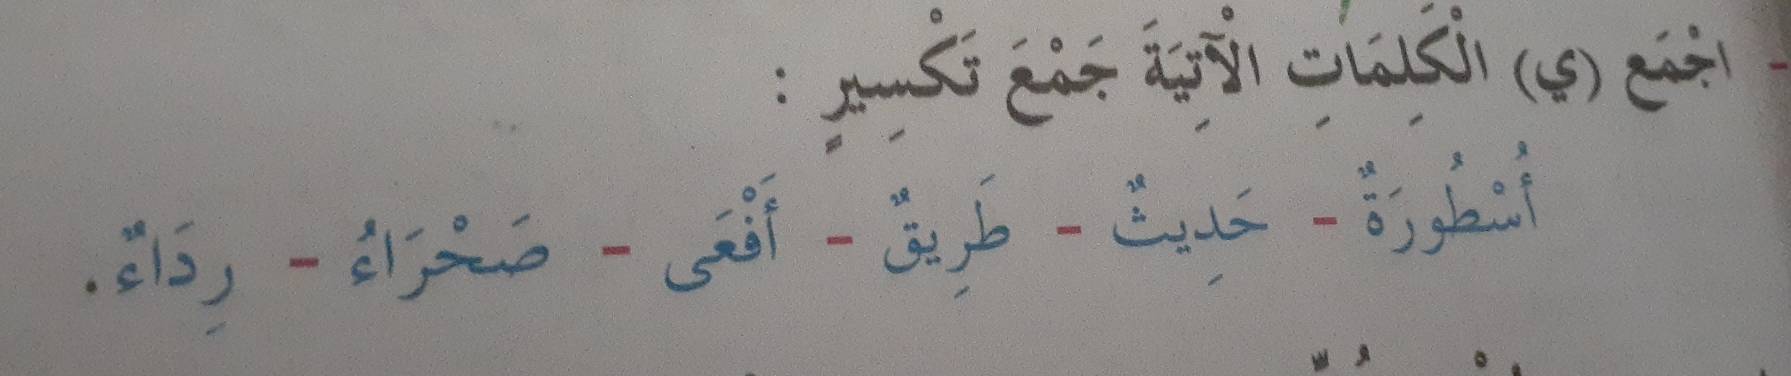 - اجْمَع (ي) الْكَلِمَاتِ الْآتِيَةَ جَمْعَ تَكْسِيرٍ :
أُسْطُورَةٌ - حَدِيثٌ - طَرِيقٌ - أَفْعَى - صَحْرَاءُ - رِدَاءٌ .